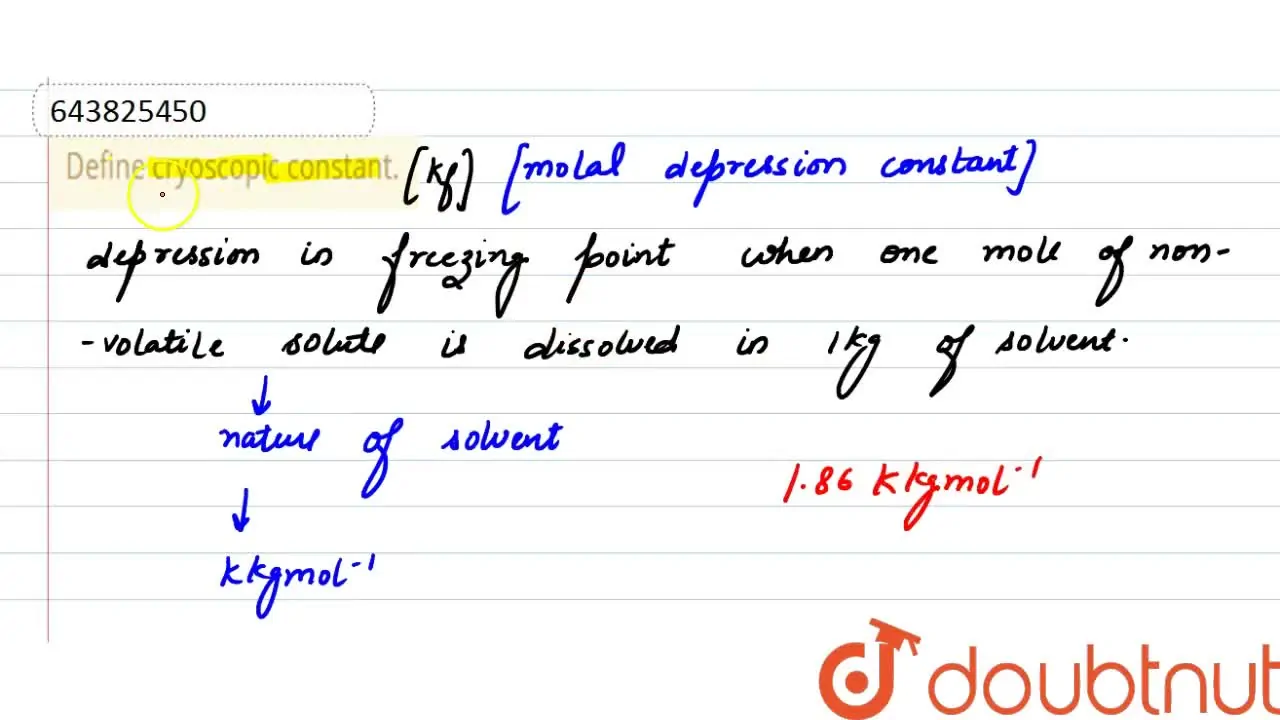 643825450
Define cryoscopic constant. [kf] [molal depression constant]
depression in freezing point when one mole of non-
-volatile solute is dissolved in 1kg of solvent.
nature of solvent
1.86 K kgmol⁻¹
K kgmol⁻¹
doubtnut